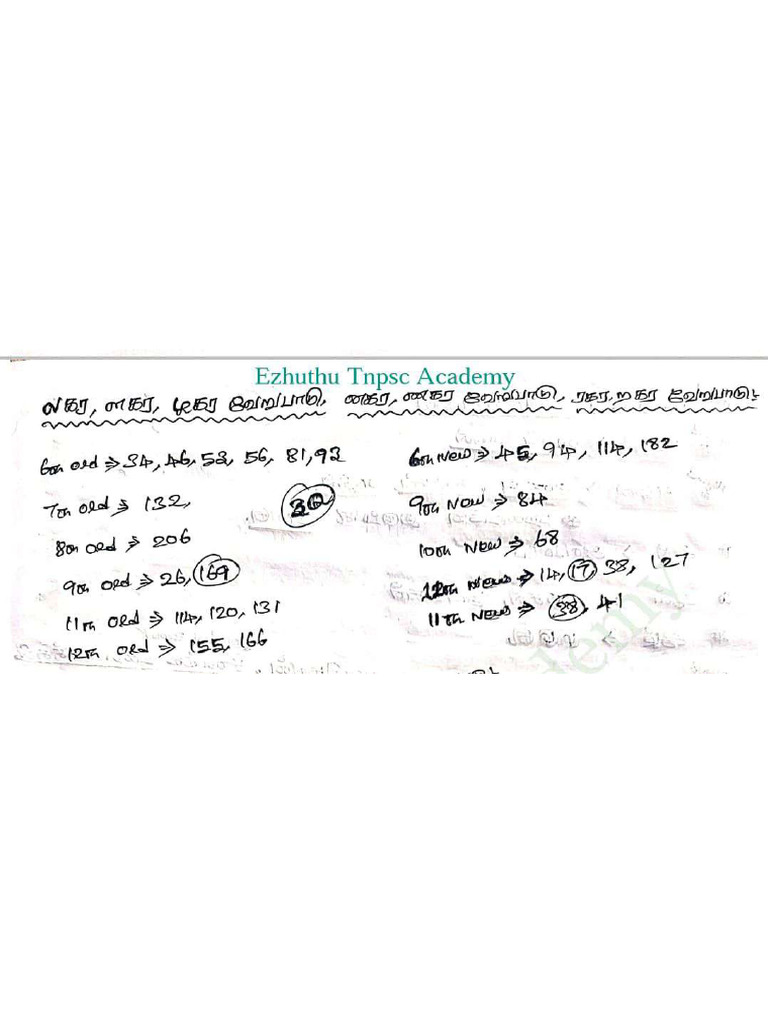 Ezhuthu Tnpsc Academy
லகர, ளகர, ழகர வேறுபாடு, னகர, ணகர வேறுபாடு, ரகர, றகர வேறுபாடு:
6th old ⇒ 34, 46, 53, 56, 81, 93
7th old ⇒ 132,
30
8th old ⇒ 206
9th old ⇒ 26, 169
11th old ⇒ 114, 120, 131
12th old ⇒ 155, 166
6th New ⇒ 45, 94, 114, 182
9th New ⇒ 84
10th New ⇒ 68
12th New ⇒ 14, 17, 38, 127
11th New ⇒ 38, 41
demy